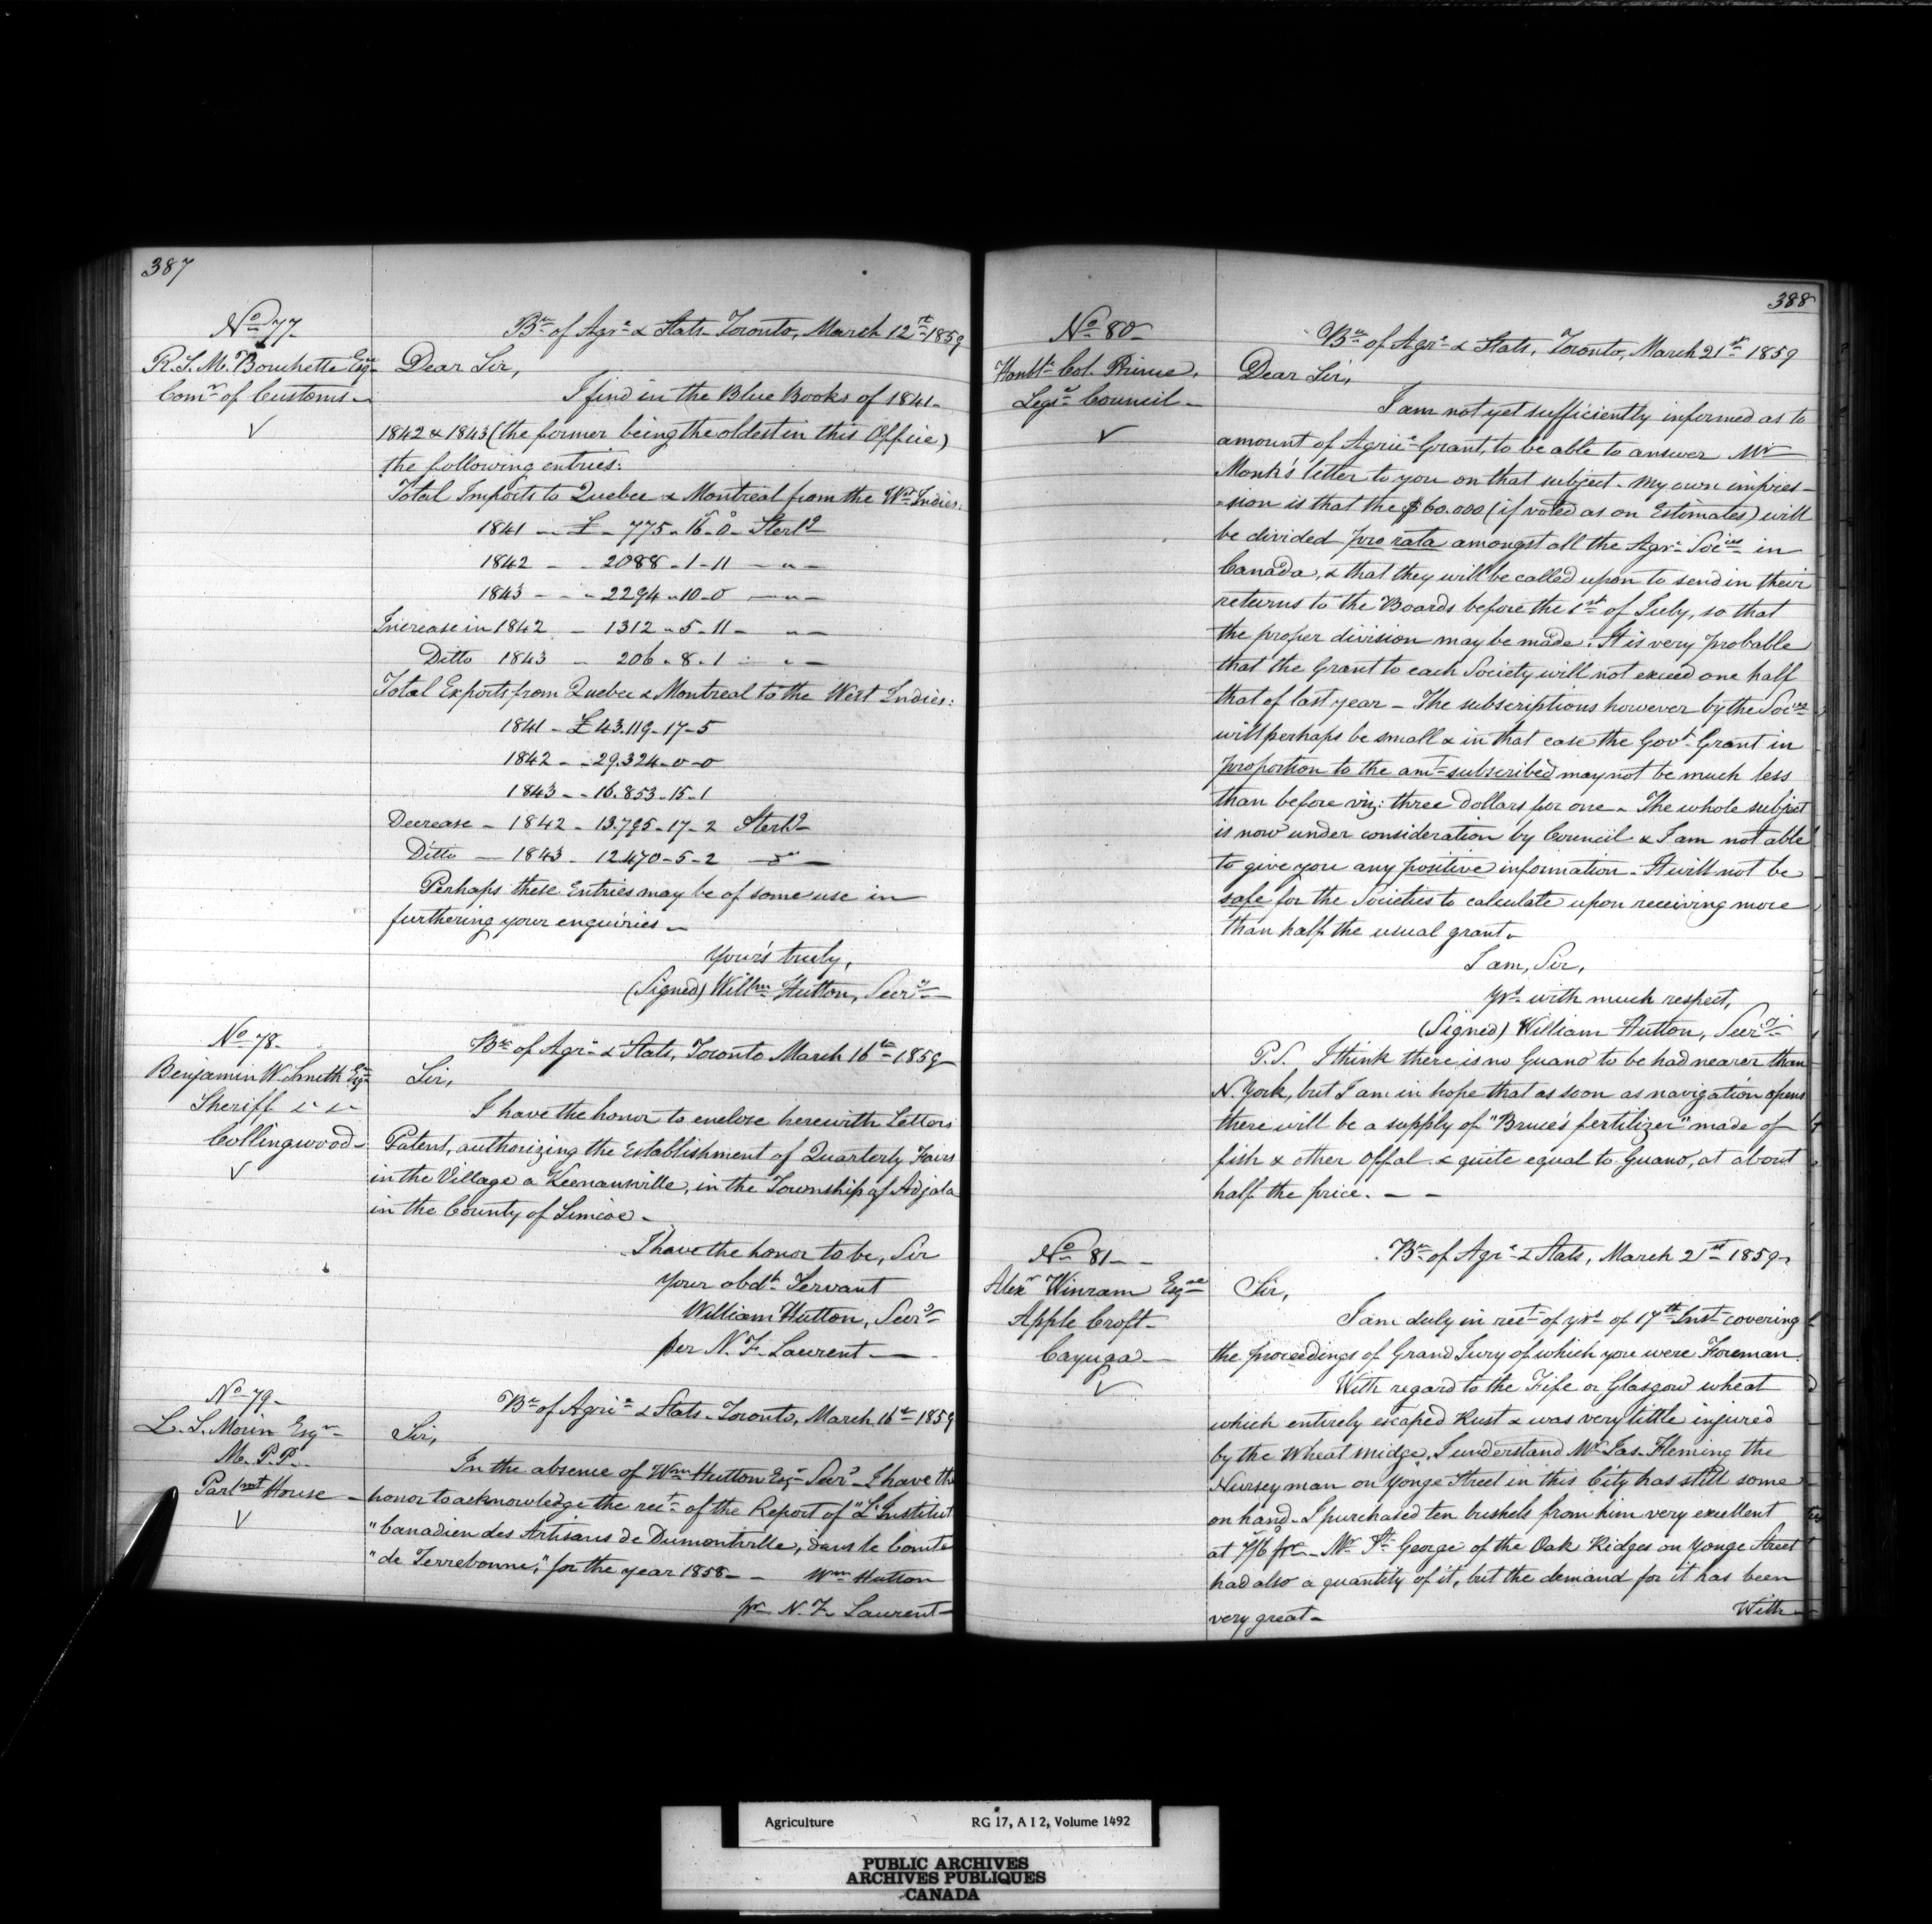 387
No 77
R. S. M. Bouchette Esqre
Comr of Customs
Bu of Agre & Stats. Toronto, March 12th 1859
Dear Sir,
I find in the Blue Books of 1841.
1842 & 1843 (the former being the oldest in this Office)
the following entries:
Total Imports to Quebec & Montreal from the Wt Indies:
1841 - £ - 775-16-0- Sterlg
1842 - - 2088-1-11 - " -
1843 - - - 2294-10-0 - " -
Increase in 1842 - 1312-5-11 - " -
Ditto 1843 - 206-8-1 - " -
Total Exports from Quebec & Montreal to the West Indies:
1841 - £43.119-17-5
1842 - - 29.324-0-0
1843 - - 16.853-15-1
Decrease - 1842 - 13.795-17-2 Sterlg
Ditto - 1843 - 12470-5-2 - " -
Perhaps these Entries may be of some use in
furthering your enquiries -
Your's truly,
(Signed) Willm Hutton, Secry
No 78-
Benjamin W. Smith Esqre
Sheriff &c &c
Collingwood-
Bu of Agre & Stats, Toronto March 16th 1859
Sir,
I have the honor to enclose herewith Letters
Patent, authorizing the Establishment of Quarterly Fairs
in the Village a Keenansville, in the Township of Adjala
in the County of Simcoe -
I have the honor to be, Sir
Your obdt Servant
William Hutton, Secry
per N. F. Laurent -
No 79-
L. S. Morin Esqre
M. P. P.
Parlmt House -
Bu of Agrie & Stats. Toronto, March 16th 1859
Sir,
In the absence of Wm Hutton Esqr Secry I have the
honor to acknowledge the rect of the Report of "L'Institut
"Canadien des Artisans de Dumontville, dans le Comté
"de Terrebonne," for the year 1858 - - Wm Hutton
pr N. F. Laurent -
388
No 80-
Honble Col. Prince,
Legve Council -
Bu of Agre & Stats, Toronto, March 21st 1859
Dear Sir,
I am not yet sufficiently informed as to
amount of Agrie Grant, to be able to answer Mr
Monk's letter to you on that subject. My own impres-
-sion is that the $60.000 (if voted as on Estimates) will
be divided pro rata amongst all the Agre Socies in
Canada, & that they will be called upon to send in their
returns to the Boards before the 1st of July, so that
the proper division may be made. It is very probable
that the Grant to each Society will not exceed one half
that of last year - The subscriptions however by the Socies
will perhaps be small & in that case the Govt Grant in
proportion to the amt subscribed may not be much less
than before viz: three dollars for one. The whole subject
is now under consideration by Council & I am not able
to give you any positive information. It will not be
safe for the Societies to calculate upon receiving more
than half the usual grant.
I am, Sir,
Yrs with much respect,
(Signed) William Hutton, Secry
P.S. I think there is no Guano to be had nearer than
N. York, but I am in hope that as soon as navigation opens
there will be a supply of "Bruce's fertilizer" made of
fish & other offal & quite equal to Guano, at about
half the price. - -
No 81 - -
Alexr Winram Esqre
Apple Croft -
Cayuga -
Bu of Agre & Stats, March 21st 1859.
Sir,
I am duly in rect of yrs of 17th Inst covering
the proceedings of Grand Jury of which you were Foreman.
With regard to the Fife or Glasgow wheat
which entirely escaped Rust & was very little injured
by the Wheat midge, I understand Mr Jas. Fleming the
Nurseyman on Yonge Street in this City has still some
on hand. I purchased ten bushels from him very excellent
at 7/6 pre - Mr St George of the Oak Ridges on Yonge Street
had also a quantity of it, but the demand for it has been
very great -
With
Agriculture RG 17, A I 2, Volume 1492
PUBLIC ARCHIVES
ARCHIVES PUBLIQUES
CANADA